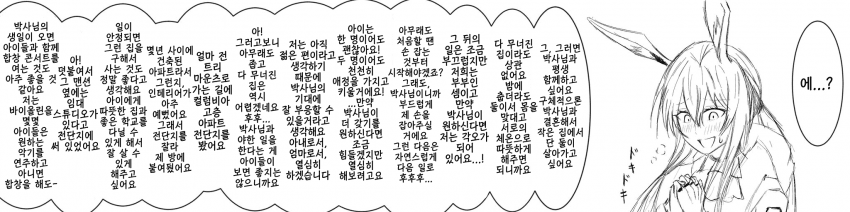 예...?
그, 그러면
박사님과
평생
함께하고
싶어요
구체적으론
박사님과
결혼해서
작은 집에서
단 둘이
살아가고
싶어요
다 무너진
집이라도
상관
없어요
밤에
춥더라도
둘이서 몸을
맞대고
서로의
체온으로
따뜻하게
해주면
되니까요
그 뒤의
일은 조금
부끄럽지만
저희는
부부인
셈이고
만약
박사님이
원하신다면
저는 각오가
되어
있어요...!
아무래도
처음할 땐
손 잡는
것부터
시작해야겠죠?
그래도,
박사님이니까
부드럽게
제 손을
잡아주실
거에요
그런 다음은
자연스럽게
다음 일로
후후후...
아이는
한 명이어도
괜찮아요!
두 명이어도
천천히
애정을 가지고
키울거에요!
...만약
박사님이
더 갖기를
원하신다면
조금
힘들겠지만
열심히
해보려고요
저는 아직
어리다고
생각하기
때문에
박사님의
기대에
잘 부응할 수
있을거라고
생각해요
아내로서,
엄마로서,
열심히
하겠습니다
아!
그러고보니
아무래도
좁고
다 무너진
집은
역시
어렵겠네요
후후...
박사님과
야한 일을
한다는 게
아이들이
보면 좋지는
않으니까요
얼마 전
트리
마운츠로
가는 길에
컬럼비아
고층
아파트
전단지를
봤어요
몇년 사이에
건축된
아파트라서
그런지
인테리어가
아주
예뻤어요
그래서
전단지를
잘라
제 방에
붙여뒀어요
일이
안정되면
그런 집을
구해서
사는 것도
정말 좋다고
생각해요
아이에게
따뜻한 집과
좋은 학교를
다닐 수
있게 해서
잘 살 수
있게
해주고
싶어요
아!
덧붙여서
그 맨션
옆에는
임대
스튜디오가
있다고
전단지에
써 있었어요
박사님의
생일이 오면
아이들과 함께
합창 콘서트를
여는 것도
아주 좋을 것
같아요
저는
바이올린을
몇몇
아이들은
원하는
악기를
연주하고
아니면
합창을 해도-
ドキドキ